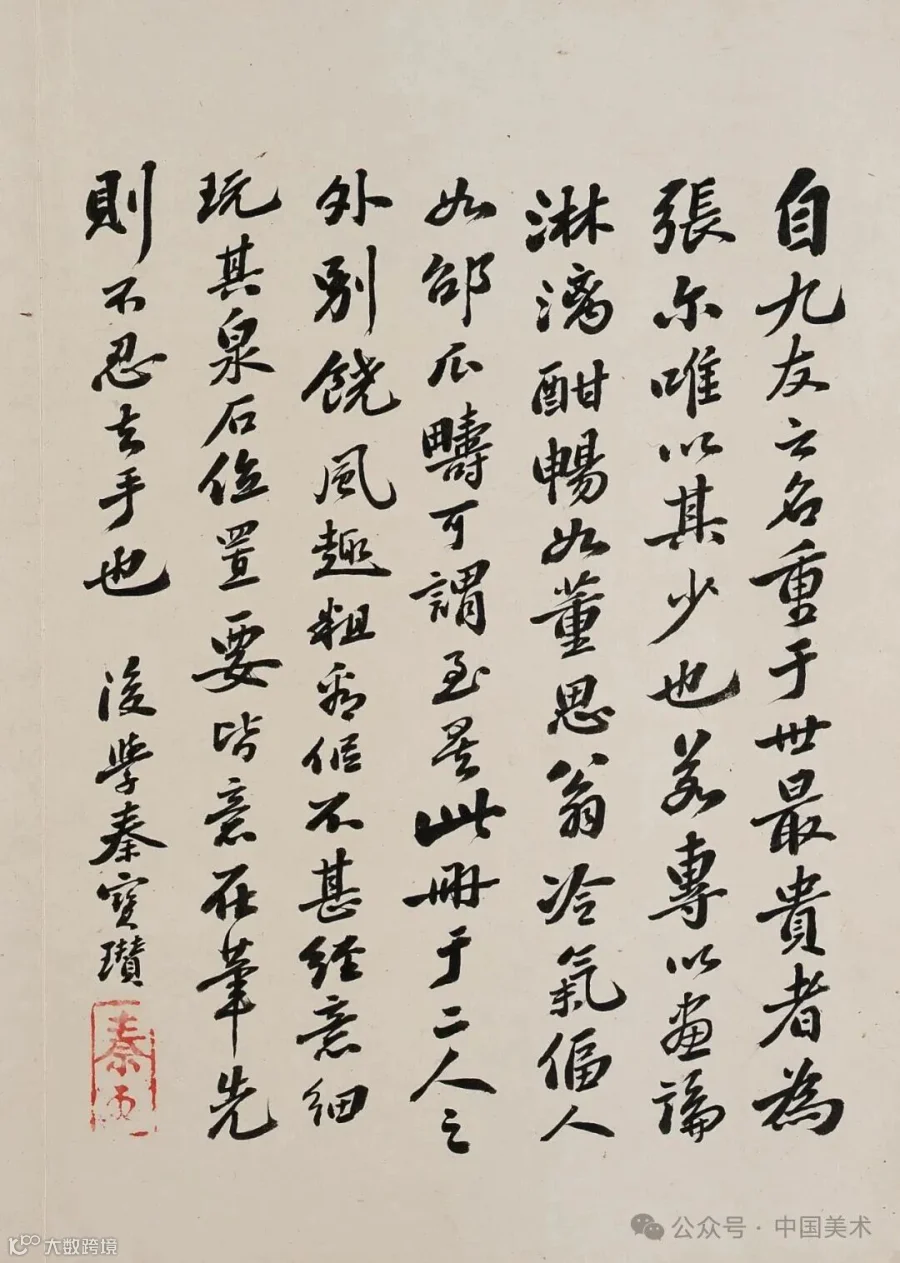 自九友之名重于世最貴者為
張尔唯以其少也若專以畫論
淋漓酣暢如董思翁冷氣偪人
如邵瓜疇可謂至矣此冊于二人之
外別饒風趣粗看似不甚經意細
玩其泉石位置要皆意在筆先
則不忍去手也 後學秦寶瓚
秦
公众号·中国美术
大数跨境